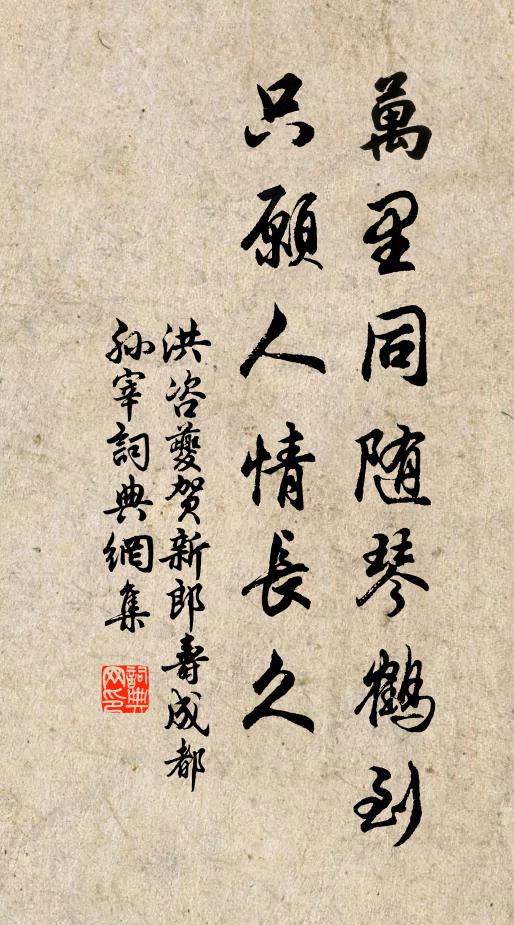 萬里同随琴鶴到
只願人情長久
洪咨夔賀新郎壽成都
孙宰詞典網集
詞典網印